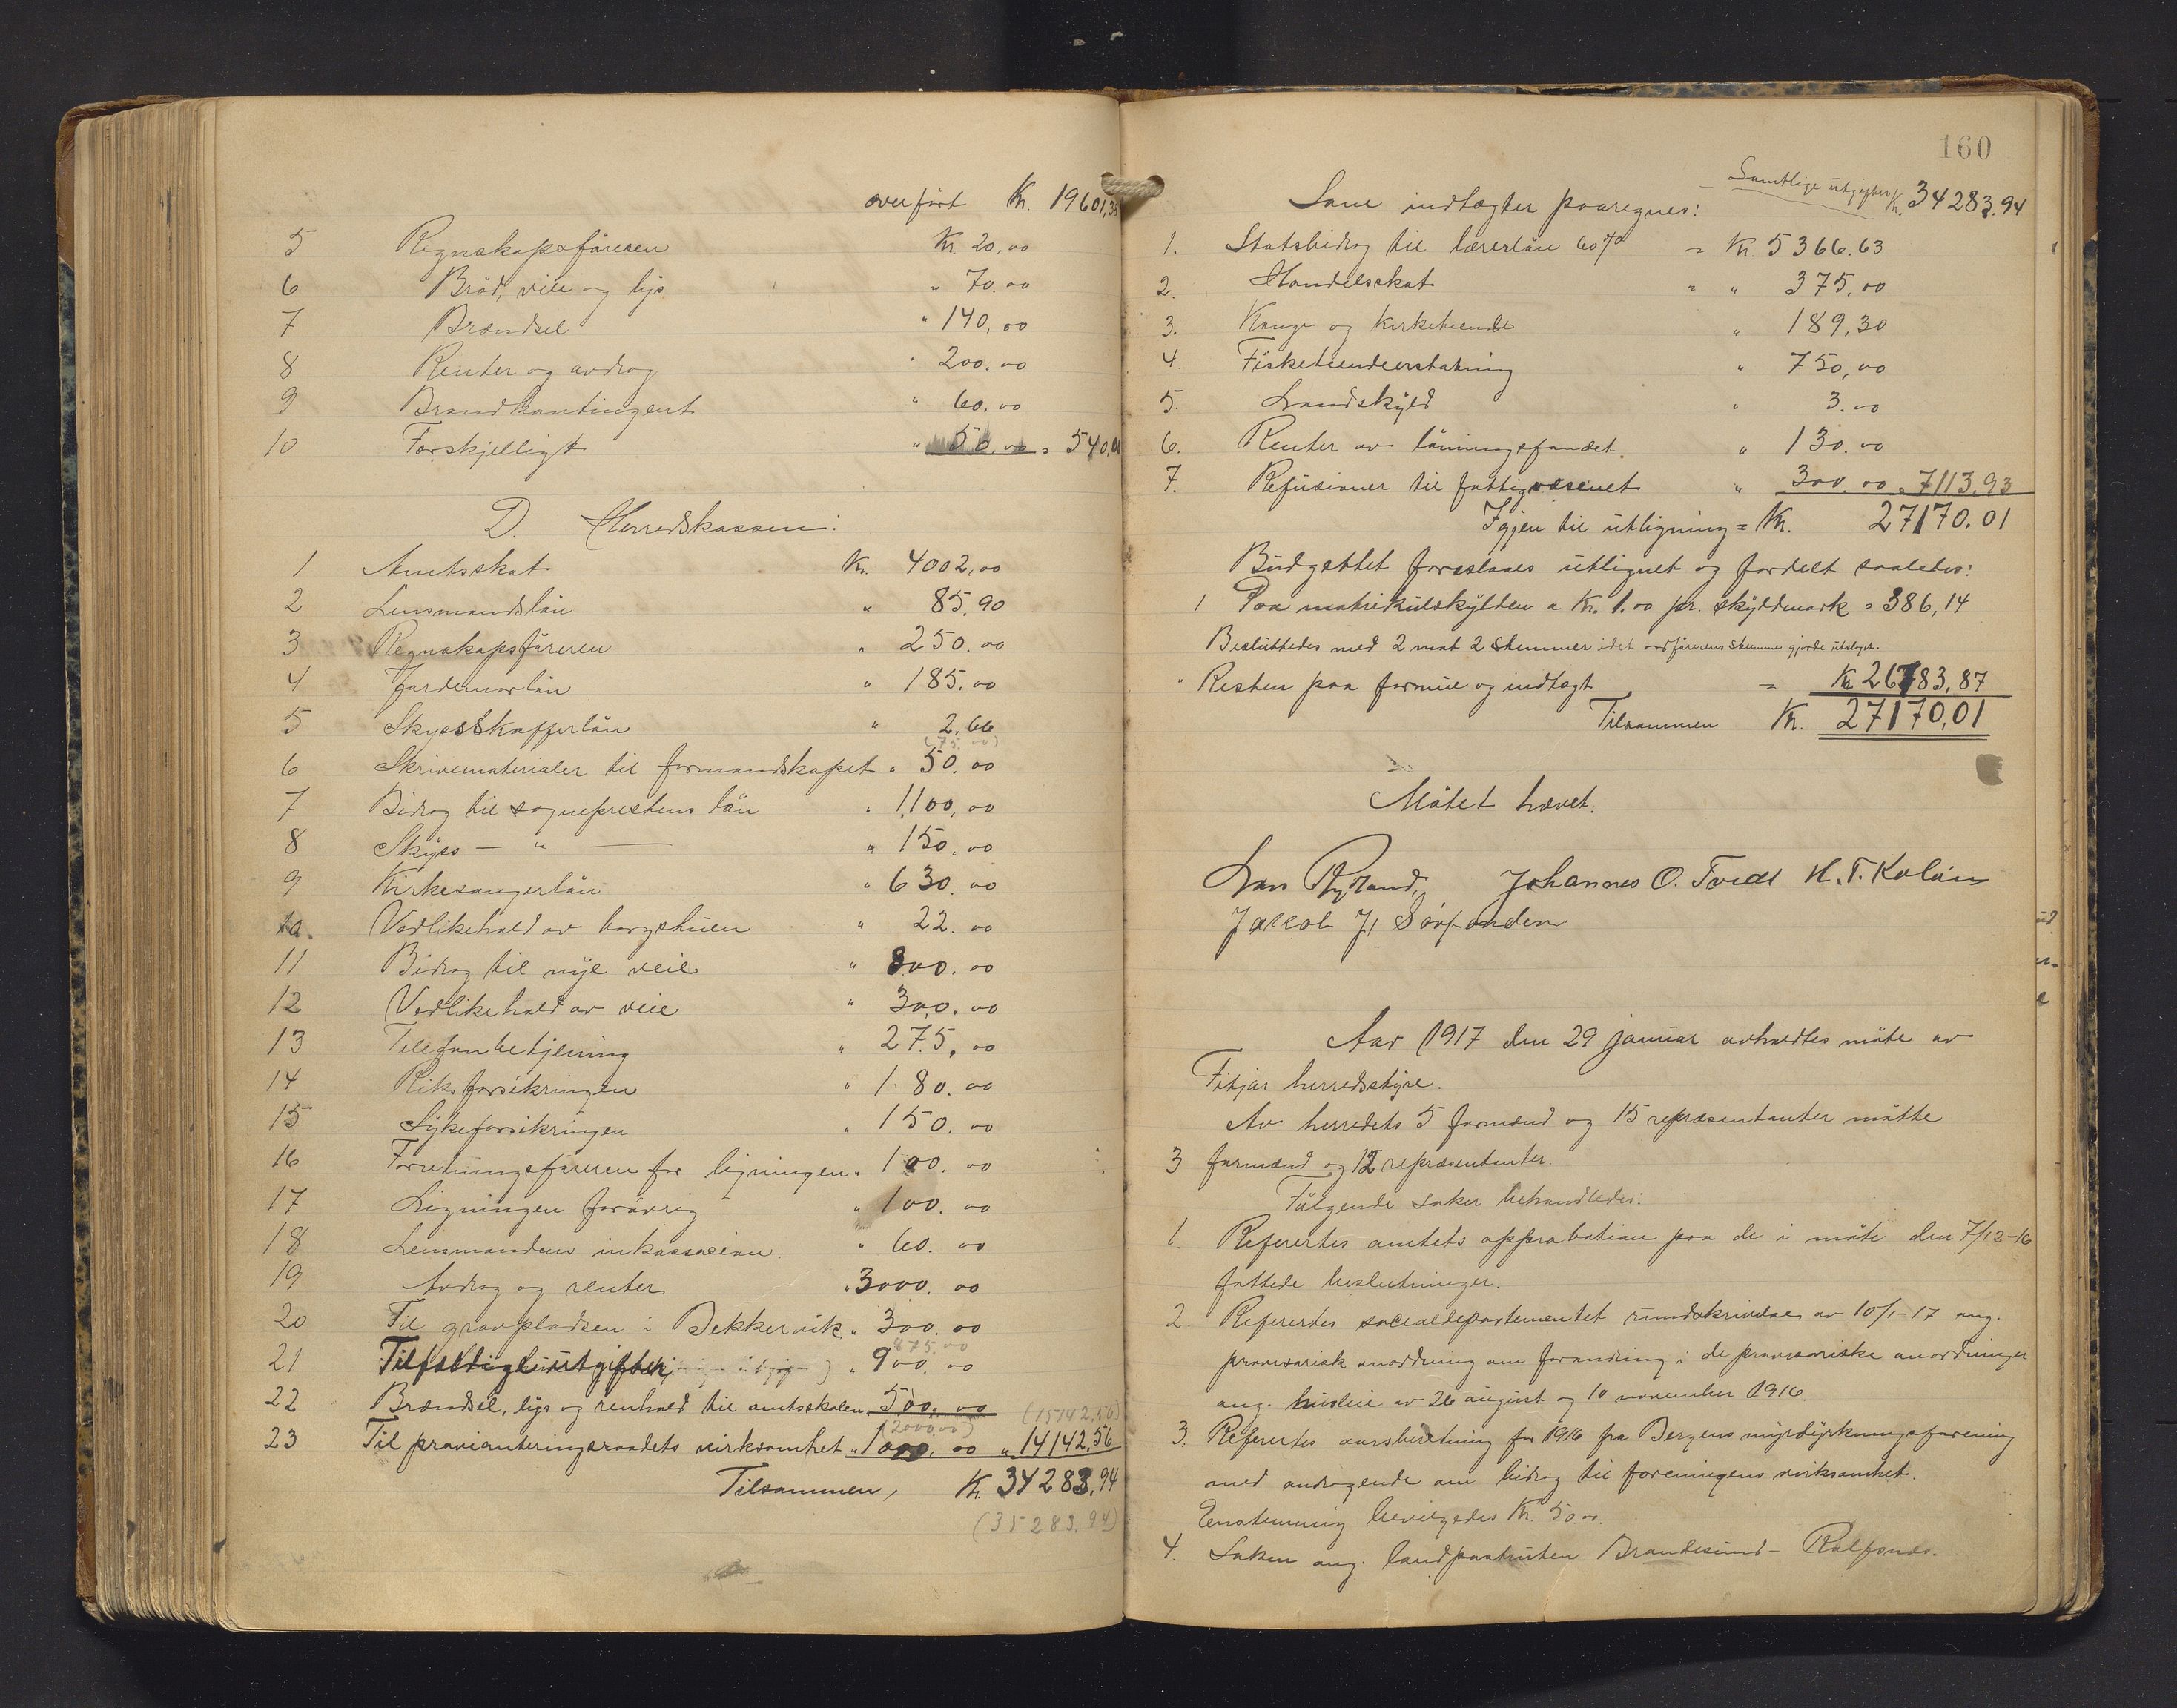 overført Kr. 19601,38
5 Regnskapsføreren Kr. 20,00
6 Brød, vin og lys " 70.00
7 Brændsel " 140,00
8 Renter og avdrag " 200.00
9 Brandkontingent " 60.00
10 Forskjelligt " 50,00 = 540,00
D. Herredskassen:
1 Amtsskat Kr. 4002,00
2 Lensmandsløn " 85.90
3 Regnskapsføreren " 250.00
4 Jordemorløn " 185.00
5 Skysskafferløn " 2,66
(75.00)
6 Skrivematerialer til formandskapet " 50.00
7 Bidrag til sogneprestens løn " 1,100,00
8 Skyss — " — " 150.00
9 Kirkesangerløn " 630.00
10. Vedlikehald av borgstuen " 22.00
11 Bidrag til nye veie " 800.00
12 Vedlikehald av veie " 300.00
13 Telefonbetjening " 275,00
14 Riksforsikringen " 180.00
15 Sykeforsikringen " 150.00
16 Forretningsføreren for ligningen " 100.00
17 Ligningen forøvrig " 100.00
18 Lensmandens inkassacion " 60.00
19 Avdrag og renter " 3000.00
20 Til gravpladsen i Dekkervik " 300.00
875.00
21 Tilfældige utgifter " 900.00
22 Brændsel, lys og renhold til amtsskolen 500.00 (15142.56)
(2000,00)
23 Til provianteringsraadets virksomhet " 1000.00 " 14142,56
Tilsammen, Kr. 34283,94
(35283.94)
160
Samtlige utgifter Kr. 34283.94
Som indtægter paaregnes:
1. Statsbidrag til lærerløn 60% = Kr. 5366.63
2. Handelsskat = " 375,00
3. Konge og Kirketiende " 189,30
4. Fisketiendeerstatning " 750,00
5. Landskyld " 3.00
6. Renter av lønningsfondet. " 130.00
7. Refusioner til fattigvæsenet " 300.00 = 7113,93
Igjen til utligning = Kr. 27170.01
Budgettet foreslaaes utlignet og fordelt saaledes:
1 Paa matrikulskylden a Kr. 1.00 pr. skyldmark = 386,14
Besluttedes med 2 mot 2 stemmer idet ordførerens stemme gjorde utslaget.
" Resten paa formue og indtægt = Kr 26783,87
Tilsammen Kr. 27170,01
Møtet hævet.
Lars Rydland, Johannes O. Tvedt H. T. Koløen
Jakob J. Sørfonden
Aar 1917 den 29 januar avholdtes møte av
Fitjar herredsstyre.
Av herredets 5 formænd og 15 repræsentanter møtte
3 formænd og 12 repræsentanter.
Følgende saker behandledes:
1. Referertes amtets approbation paa de i møte den 7/12-16
fattede beslutninger.
2. Referertes socialdepartementet rundskrivelse av 10/1-17 ang.
provisorisk anordning om forandring i de provisoriske anordninger
ang. husleie av 26 august og 10 november 1916.
3. Referertes aarsberetning for 1916 fra Bergens myrdyrkningsforening
med andragende om bidrag til foreningens virksomhet.
Enstemmig bevilgedes Kr. 50.00.
4. Saken ang. landpostruten Brandesund - Rolfsnes.